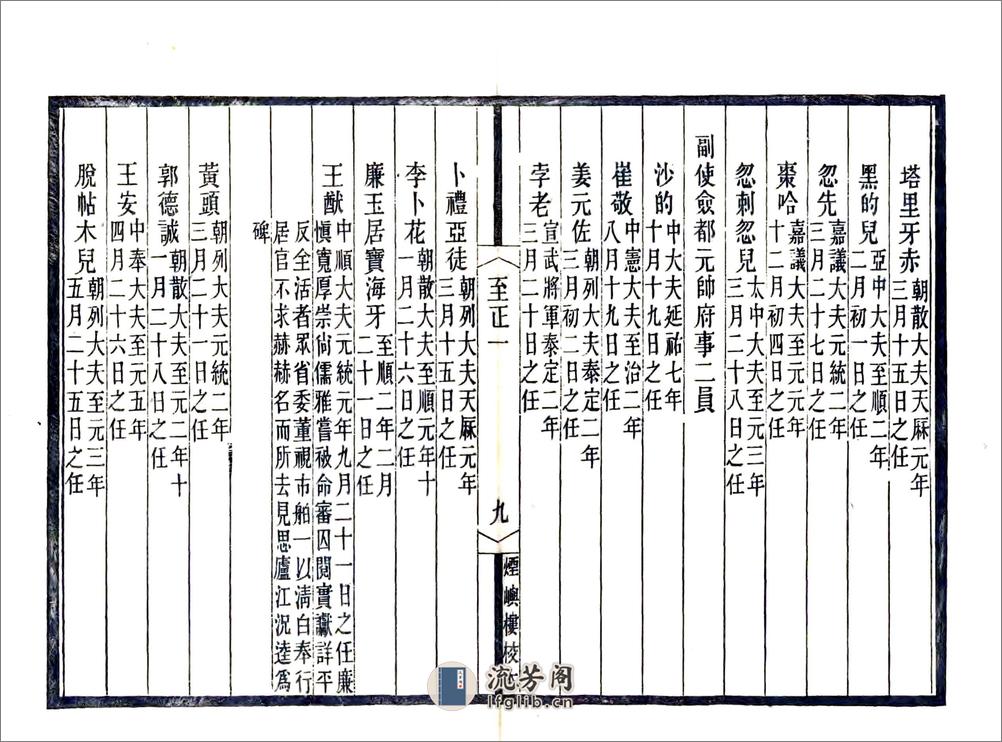 塔里牙赤朝散大夫天厤元年三月十五日之任
黑的兒亞中大夫至順二年二月初一日之任
忽先嘉議大夫元統二年三月二十七日之任
棗哈嘉議大夫至元二年十二月初四日之任
忽刺忽兒太中大夫至元三年三月二十八日之任
副使僉都元帥府事二員
沙的中大夫延祐七年十月十九日之任
崔敬中憲大夫至治二年八月十九日之任
姜元佐朝列大夫泰定二年三月初二日之任
李老宣武將軍泰定二年三月二十日之任
至正一
九
煙嶼樓校
卜禮亞徒朝列大夫天厤元年三月十五日之任
李卜花朝散大夫至順元年十一月二十六日之任
廉玉居寶海牙至順二年二月二十一日之任
王猷中順大夫元統元年九月二十一日之任廉
愼寬厚崇尙儒雅嘗被命審囚閱實讞詳平
反全活者眾省委董視市舶一以淸白奉行
居官不求赫赫名而所去見思廬江況逵爲
碑
黃頭朝列大夫元統二年三月二十一日之任
郭德誠朝散大夫至元二年十一月二十八日之任
王安中奉大夫至元五年四月二十六日之任
脫帖木兒朝列大夫至元三年五月二十五日之任
流芳阁
lfglib.cn